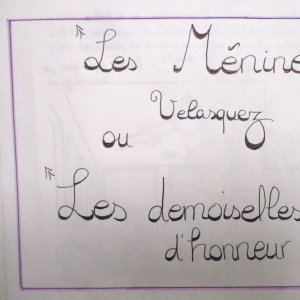 Les Ménine
Velasquez
ou
Les demoiselles
d'honneur